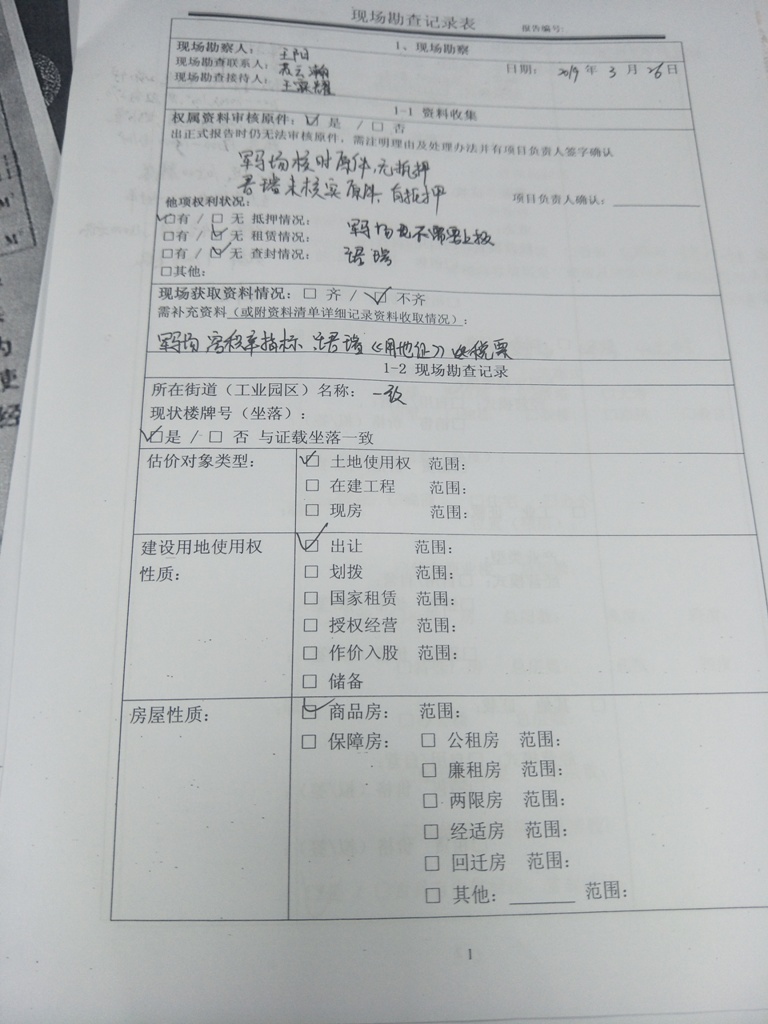 现场勘查记录表
报告编号:
1、现场勘察
现场勘察人： 王阳
现场勘查联系人：
现场勘查接待人：
日期： 2019 年 3 月 26 日
1-1 资料收集
权属资料审核原件：☑ 是 / ☐ 否
出正式报告时仍无法审核原件，需注明理由及处理办法并有项目负责人签字确认
核对原件，无抵押
未核实原件，有抵押
项目负责人确认：
他项权利状况：
☑有 / ☐ 无 抵押情况：
☐有 / ☑ 无 租赁情况：
☐有 / ☑ 无 查封情况：
☐其他：
现场获取资料情况：☐ 齐 / ☑ 不齐
需补充资料（或附资料清单详细记录资料收取情况）：
容积率指标 《用地证》 税票
1-2 现场勘查记录
所在街道（工业园区）名称： 一致
现状楼牌号（坐落）：
☑是 / ☐ 否 与证载坐落一致
估价对象类型： ☑ 土地使用权 范围：
☐ 在建工程 范围：
☐ 现房 范围：
建设用地使用权性质： ☑ 出让 范围：
☐ 划拨 范围：
☐ 国家租赁 范围：
☐ 授权经营 范围：
☐ 作价入股 范围：
☐ 储备
房屋性质： ☑ 商品房： 范围：
☐ 保障房： ☐ 公租房 范围：
☐ 廉租房 范围：
☐ 两限房 范围：
☐ 经适房 范围：
☐ 回迁房 范围：
☐ 其他：______ 范围：
1